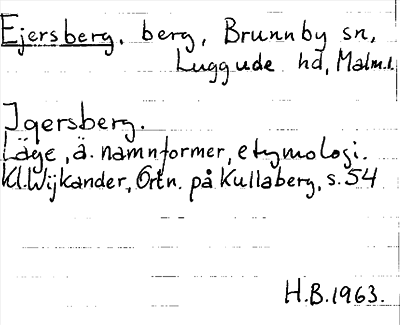 Ejersberg. berg, Brunnby sn,
Luggude hd, Malm.l.
Igersberg.
Läge, ä. namnformer, etymologi.
Kl. Wijkander, Ortn. på Kullaberg, s. 54
H.B. 1963.